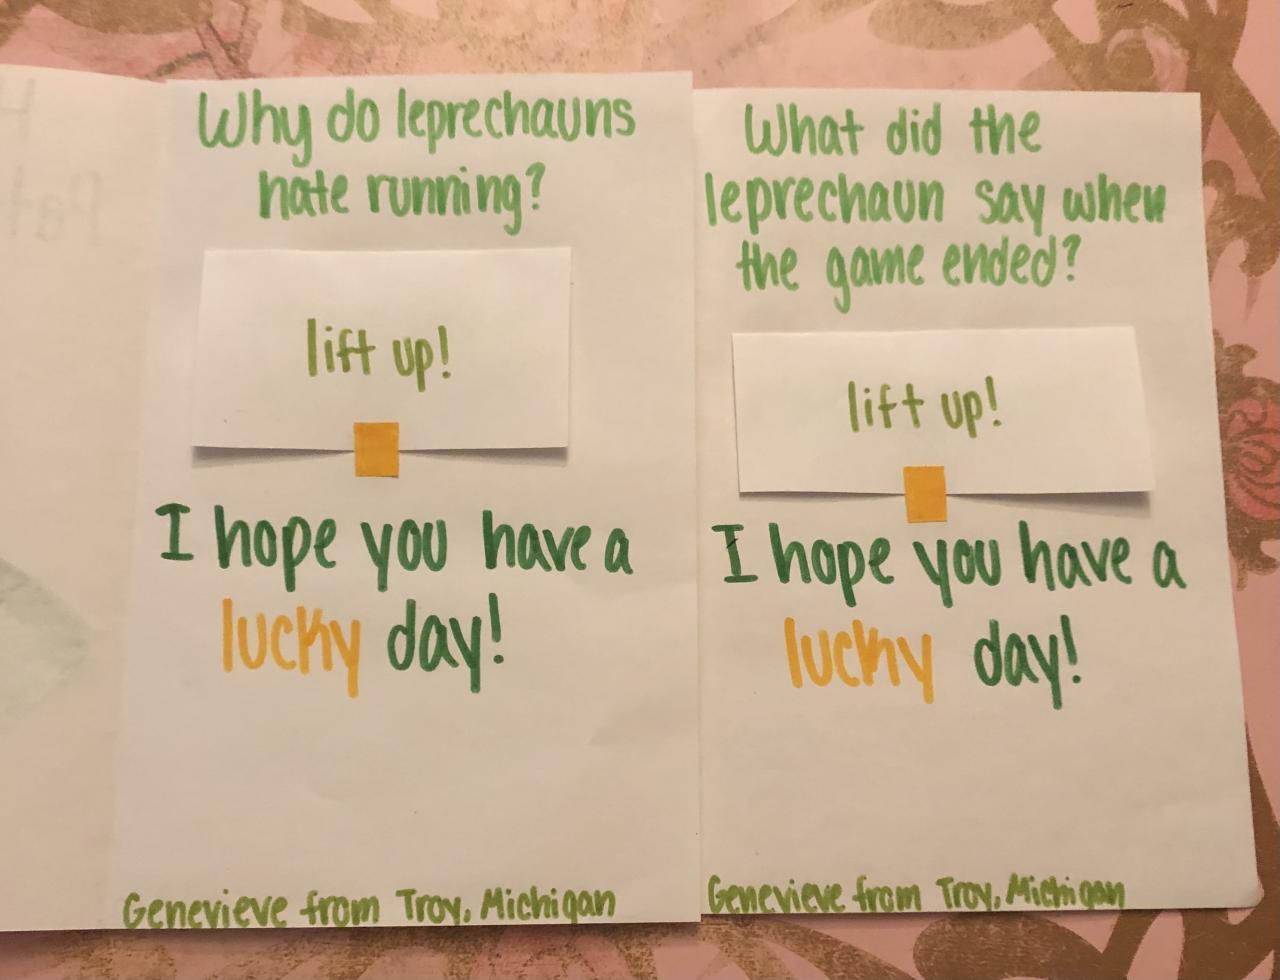 Why do leprechauns
hate running?
lift up!
I hope you have a
lucky day!
Genevieve from Troy, Michigan
What did the
leprechaun say when
the game ended?
lift up!
I hope you have a
lucky day!
Genevieve from Troy, Michigan